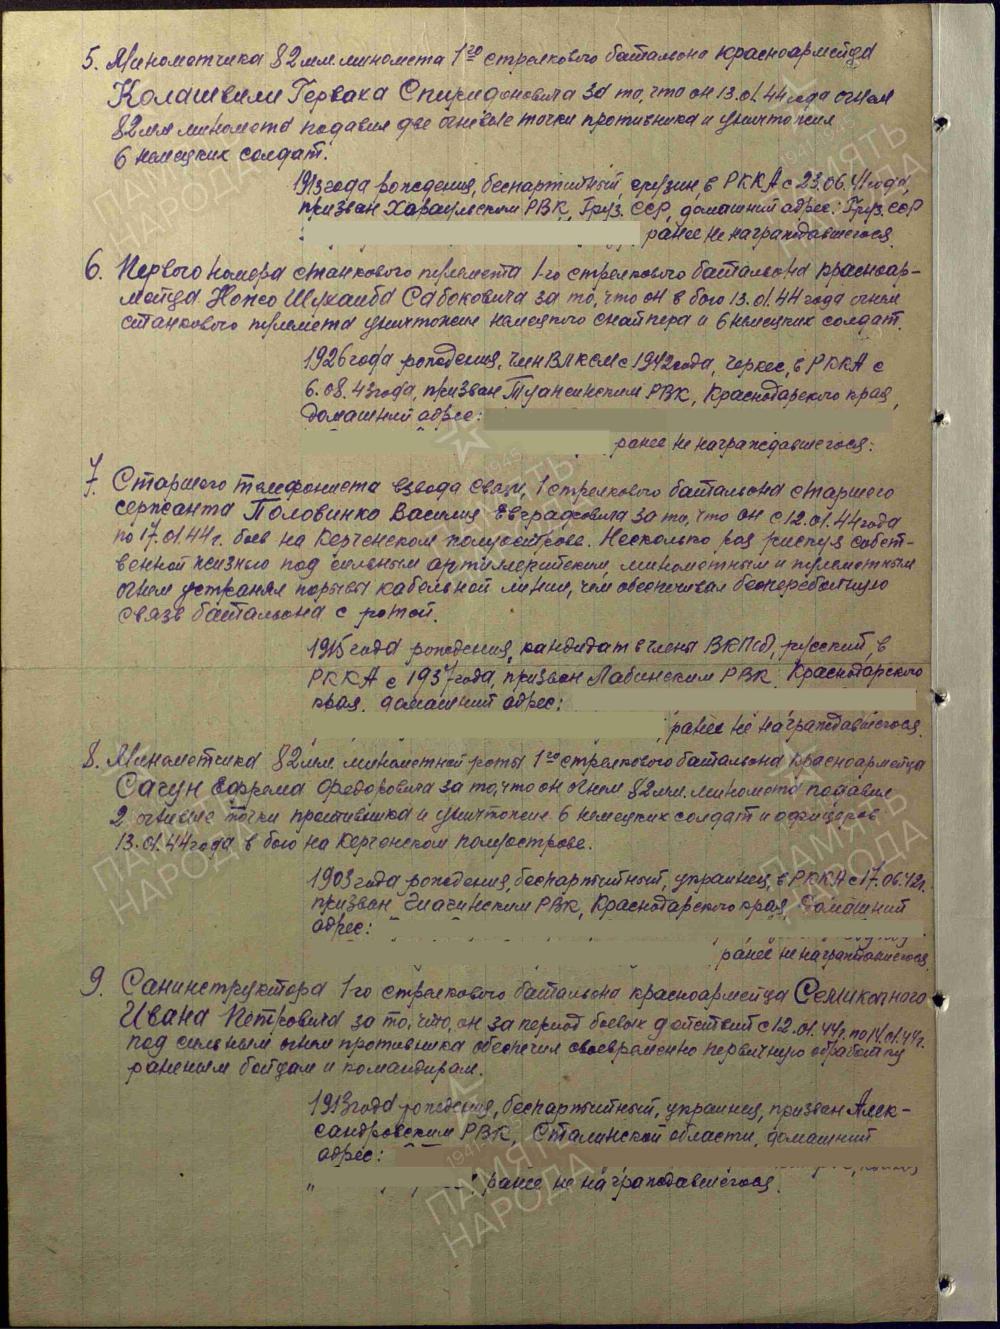 5. Минометчика 82 мм. миномета 1го стрелкового батальона красноармейца
Колашвили Герваха Спиридоновича за то, что он 13.01.44 года огнем
82 мм миномета подавил две огневые точки противника и уничтожил
6 немецких солдат.
1913 года рождения, беспартийный, грузин в РККА с 23.06.41 года,
призван Харагульским РВК, Груз. ССР, домашний адрес: Груз. ССР
ранее не награждавшегося
6. Первого номера станкового пулемета 1-го стрелкового батальона красноар-
мейца Хожо Шухаиба Сабоковича за то, что он в бою 13.01.44 года огнем
станкового пулемета уничтожил немецкого снайпера и 6 немецких солдат.
1926 года рождения, член ВЛКСМ с 1942 года, черкес, в РККА с
6.08.43 года, призван Туапсинским РВК, Краснодарского края,
домашний адрес:
ранее не награждавшегося:
7. Старшего телефониста взвода связи, 1 стрелкового батальона старшего
сержанта Половинко Василия Евграфовича за то, что он с 12.01.44 года
по 17.01.44 г. боев на Керченском полуострове. Несколько раз рискуя собст-
венной жизнью под сильным артиллерийским, минометным и пулеметным
огнем устранял порывы кабельной линии, чем обеспечивал бесперебойную
связь батальона с ротой.
1915 года рождения, кандидат в члены ВКП(б), русский, в
РККА с 1937 года, призван Лабинским РВК, Краснодарского
края. домашний адрес:
ранее не награждавшегося
8. Минометчика 82 мм. минометной роты 1го стрелкового батальона красноармейца
Сагун Ефрема Федоровича за то, что он огнем 82 мм. миномета подавил
2 огневые точки противника и уничтожил 6 немецких солдат и офицеров
13.01.44 года в бою на Керченском полуострове.
1903 года рождения, беспартийный, украинец, в РККА с 17.06.42 г.
призван Гиагинским РВК, Краснодарского края, Домашний
адрес:
ранее не награждавшегося
9. Санинструктора 1-го стрелкового батальона красноармейца Семикачного
Ивана Петровича за то, что, он за период боевых действий с 12.01.44 г. по 14.01.44 г.
под сильным огнем противника обеспечил своевременно первичную обработку
раненым бойцам и командирам.
1913 года рождения, беспартийный, украинец, призван Алек-
сандровским РВК, Сталинской области, домашний
адрес:
ранее не награждавшегося.
ПАМЯТЬ
НАРОДА
1941-1945